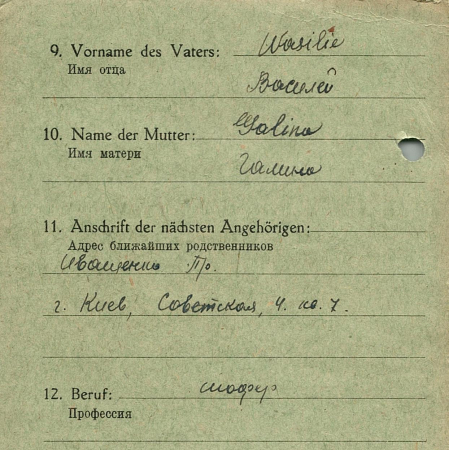 9. Vorname des Vaters: Wasilie
Имя отца
Василей
10. Name der Mutter: Galina
Имя матери
Галина
11. Anschrift der nächsten Angehörigen:
Адрес ближайших родственников
Иващенко
г. Киев, Советская, 4. кв. 7.
12. Beruf: шофер
Профессия